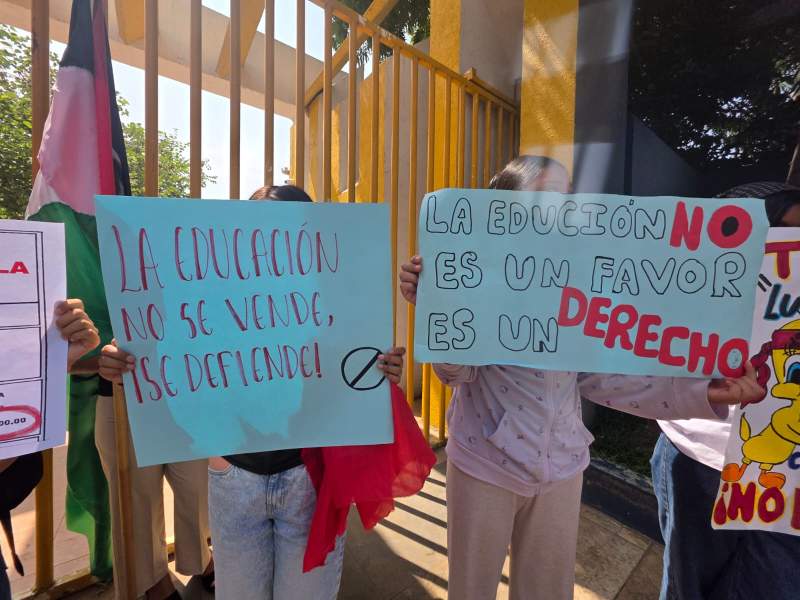 LA
A
00.00
LA EDUCACIÓN
NO SE VENDE,
¡SE DEFIENDE!
LA EDUCIÓN NO
ES UN FAVOR
ES UN DERECHO
LU
¡NO